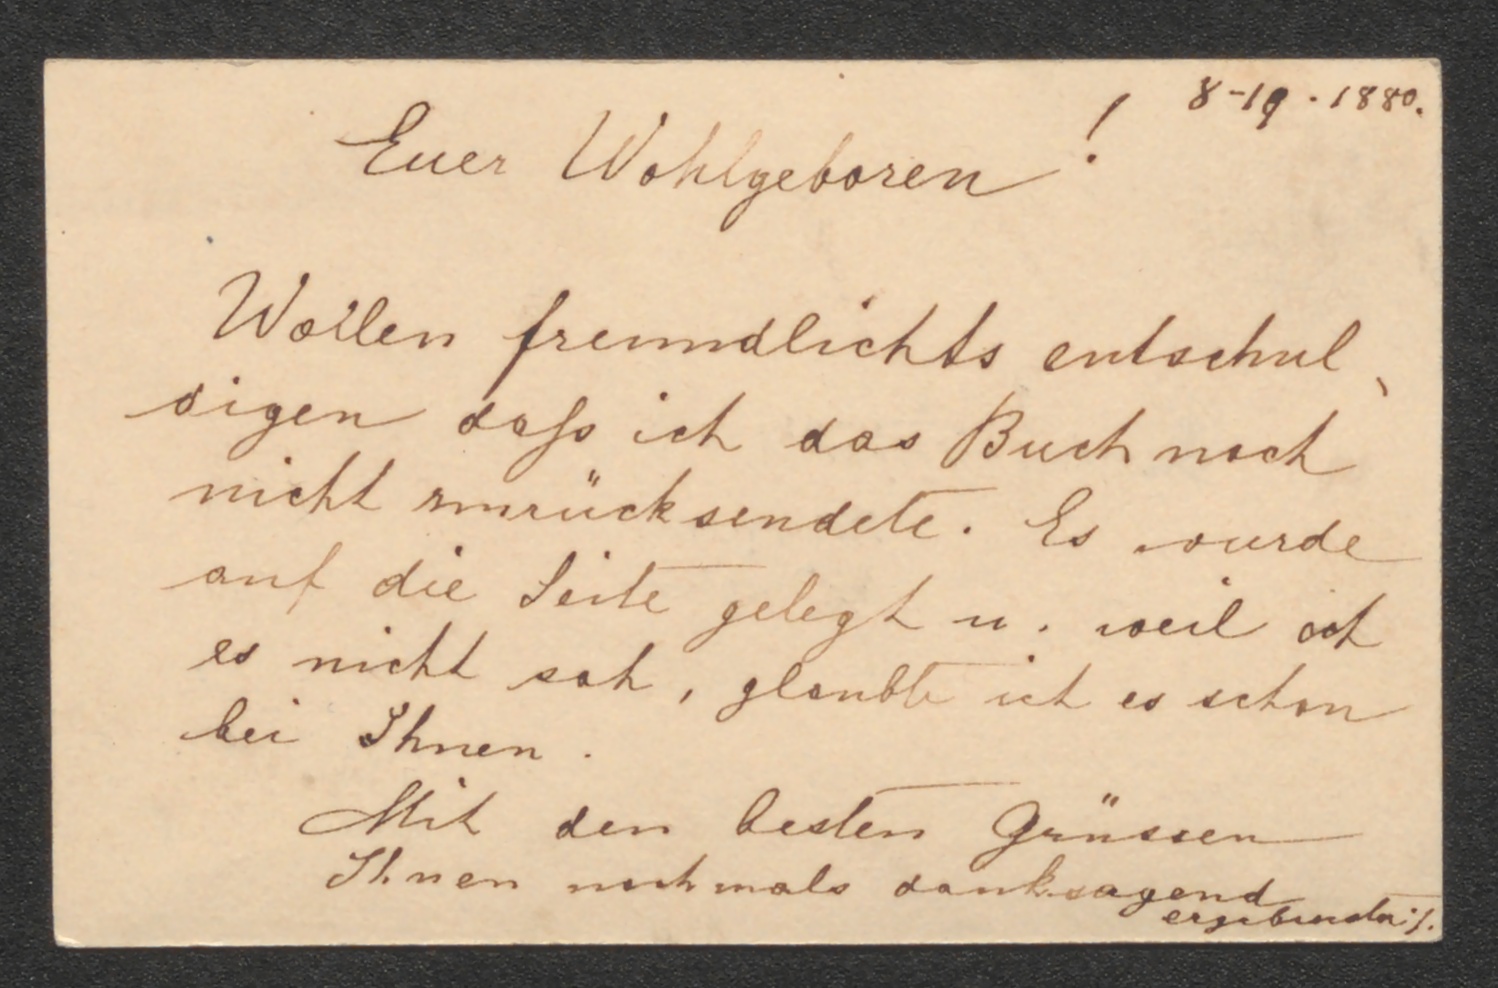 8-19. 1880.
Euer Wohlgeboren!
Wollen freundlichts entschul
digen daſs ich das Buch noch
nicht zurücksendete. Es wurde
auf die Seite gelegt u. weil ich
es nicht sah, glaubte ich es schon
bei Ihnen.
Mit den besten Grüssen
Ihnen nochmals danksagend